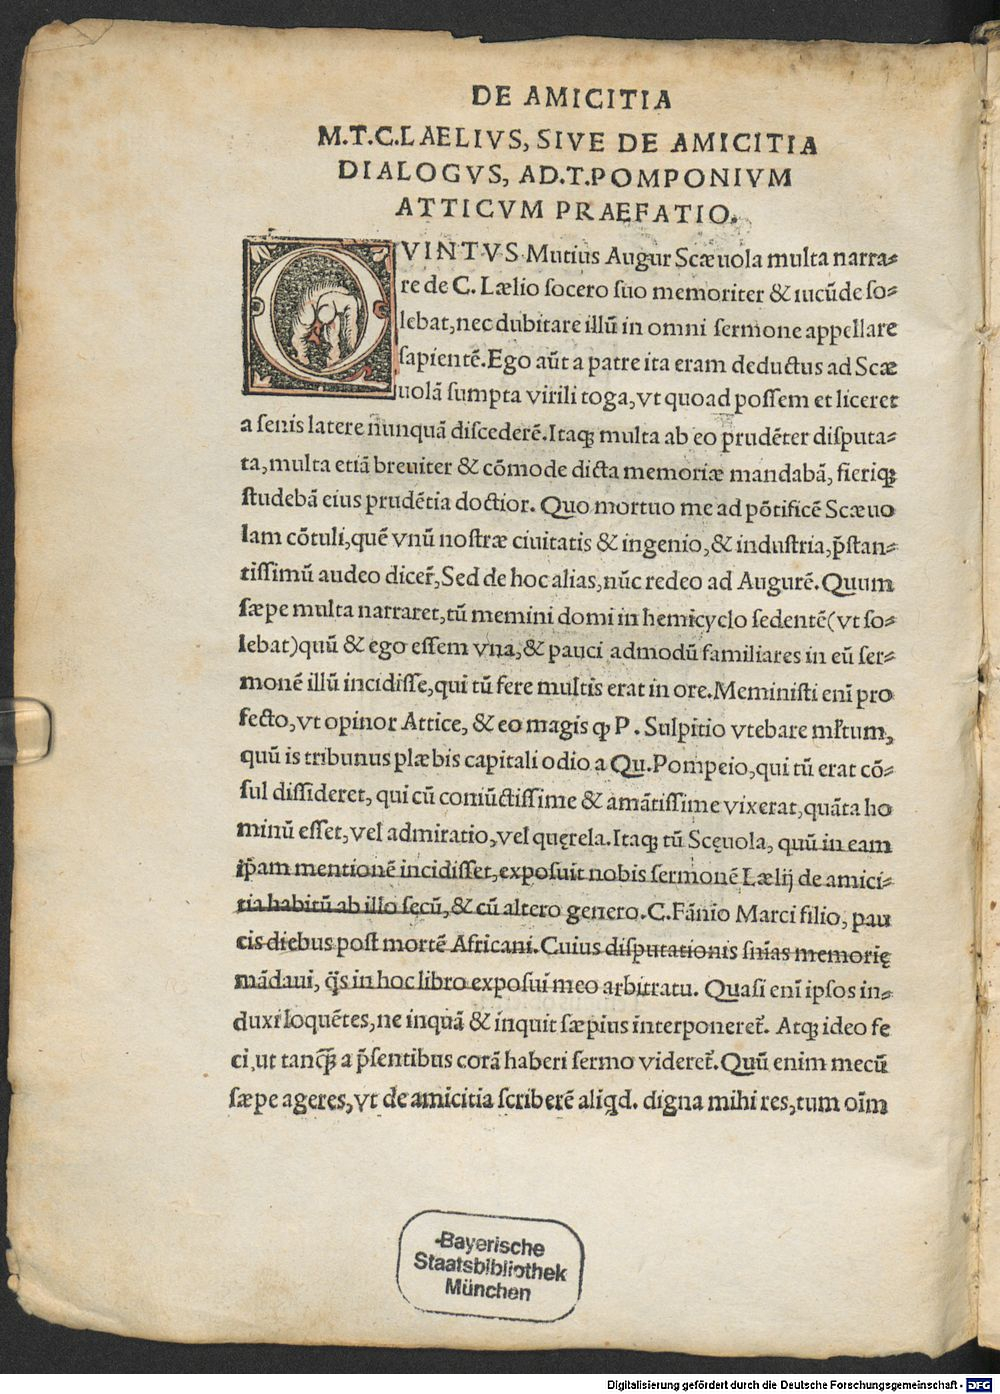 DE AMICITIA
M.T.C.LAELIVS, SIVE DE AMICITIA
DIALOGVS, AD.T.POMPONIVM
ATTICVM PRAEFATIO.
QVINTVS Mutius Augur Scæuola multa narra⸗
re de C. Lælio socero suo memoriter & iucũde so⸗
lebat, nec dubitare illũ in omni sermone appellare
sapientẽ. Ego aũt a patre ita eram deductus ad Scæ
uolã sumpta virili toga, vt quoad possem et liceret
a senis latere nunquã discederẽ. Itaqꝫ multa ab eo prudẽter disputa⸗
ta, multa etiã breuiter & cõmode dicta memoriæ mandabã, fieriqꝫ
studebã eius prudẽtia doctior. Quo mortuo me ad põtificẽ Scæuo
lam cõtuli, quẽ vnũ nostræ ciuitatis & ingenio, & industria, p̃stan⸗
tissimũ audeo dicer̃, Sed de hoc alias, nũc redeo ad Augurẽ. Quum
sæpe multa narraret, tũ memini domi in hemicyclo sedentẽ (vt so⸗
lebat) quũ & ego essem vna, & pauci admodũ familiares in eũ ser⸗
monẽ illũ incidisse, qui tũ fere multis erat in ore. Meministi enĩ pro
fecto, vt opinor Attice, & eo magis ꝙ P. Sulpitio vtebare ml̃tum,
quũ is tribunus plæbis capitali odio a Qu. Pompeio, qui tũ erat cõ⸗
sul dissideret, qui cũ coniũctissime & amãtissime vixerat, quãta ho
minũ esset, vel admiratio, vel quęrela. Itaqꝫ tũ Scęuola, quũ in eam
ip̃am mentionẽ incidisset, exposuit nobis sermonẽ Lælij de amici⸗
tia habitũ ab illo secũ, & cũ altero genero. C. Fãnio Marci filio, pau
cis diebus post mortẽ Africani. Cuius disputationis sñias memorię
mãdaui, q̃s in hoc libro exposui meo arbitratu. Quasi enĩ ipsos in⸗
duxi loquẽtes, ne inquã & inquit sæpius interponeret̃. Atqꝫ ideo fe
ci, ut tanq̃ꝫ a p̃sentibus corã haberi sermo videret̃. Quũ enim mecũ
sæpe ageres, vt de amicitia scriberẽ aliqd. digna mihi res, tum oĩm
Bayerische
Staatsbibliothek
München
Digitalisierung gefördert durch die Deutsche Forschungsgemeinschaft - DFG